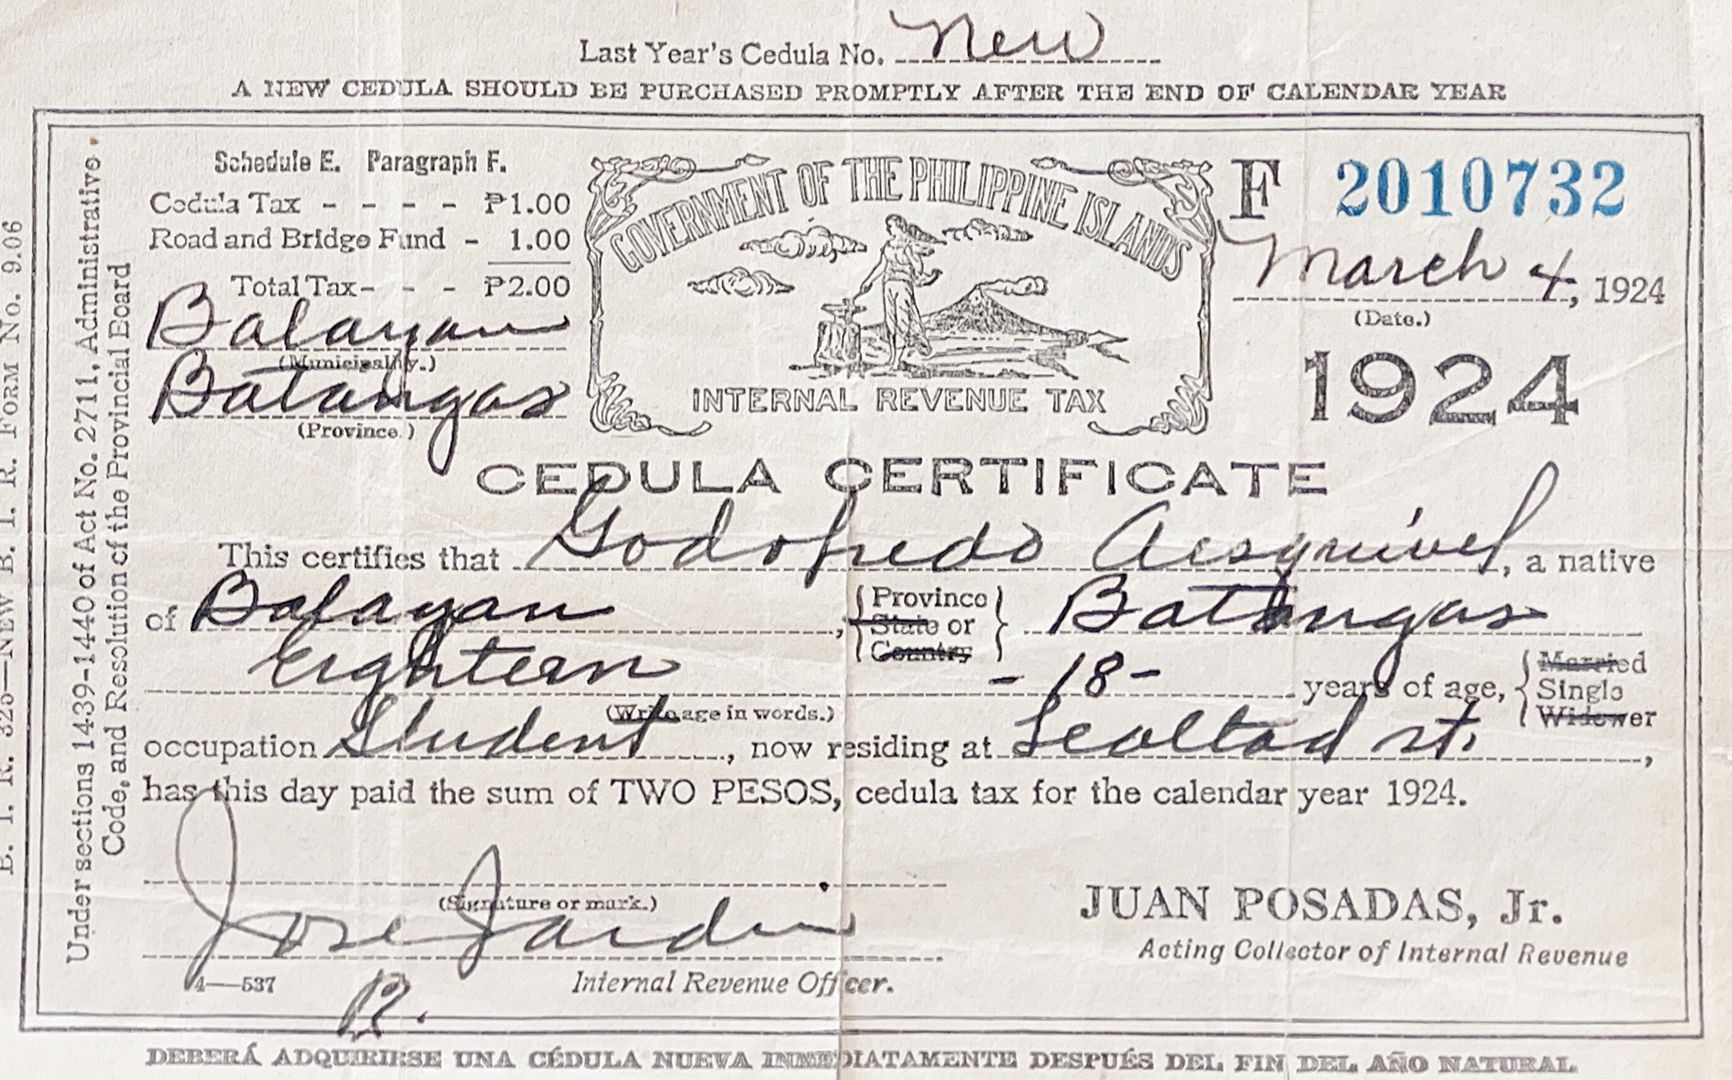 Last Year's Cedula No. New
A NEW CEDULA SHOULD BE PURCHASED PROMPTLY AFTER THE END OF CALENDAR YEAR
B. I. R. 325—NEW B. I. R. FORM No. 9.06
Under sections 1439-1440 of Act No. 2711, Administrative
Code, and Resolution of the Provincial Board
Schedule E. Paragraph F.
Cedula Tax - - - - ₱1.00
Road and Bridge Fund - 1.00
Total Tax - - - ₱2.00
Balayan
(Municipality.)
Batangas
(Province.)
GOVERNMENT OF THE PHILIPPINE ISLANDS
INTERNAL REVENUE TAX
F 2010732
March 4, 1924
(Date.)
1924
CEDULA CERTIFICATE
This certifies that Godofredo Aesquivel, a native
of Balayan, { Province State or Country } Batangas
Eightern -18- years of age, { Married Single Widower
(Write age in words.)
occupation Student, now residing at st.,
has this day paid the sum of TWO PESOS, cedula tax for the calendar year 1924.
(Signature or mark.)
Jose Jardin
4—537 Internal Revenue Officer.
JUAN POSADAS, Jr.
Acting Collector of Internal Revenue
DEBERÁ ADQUIRIRSE UNA CÉDULA NUEVA INMEDIATAMENTE DESPUÉS DEL FIN DEL AÑO NATURAL